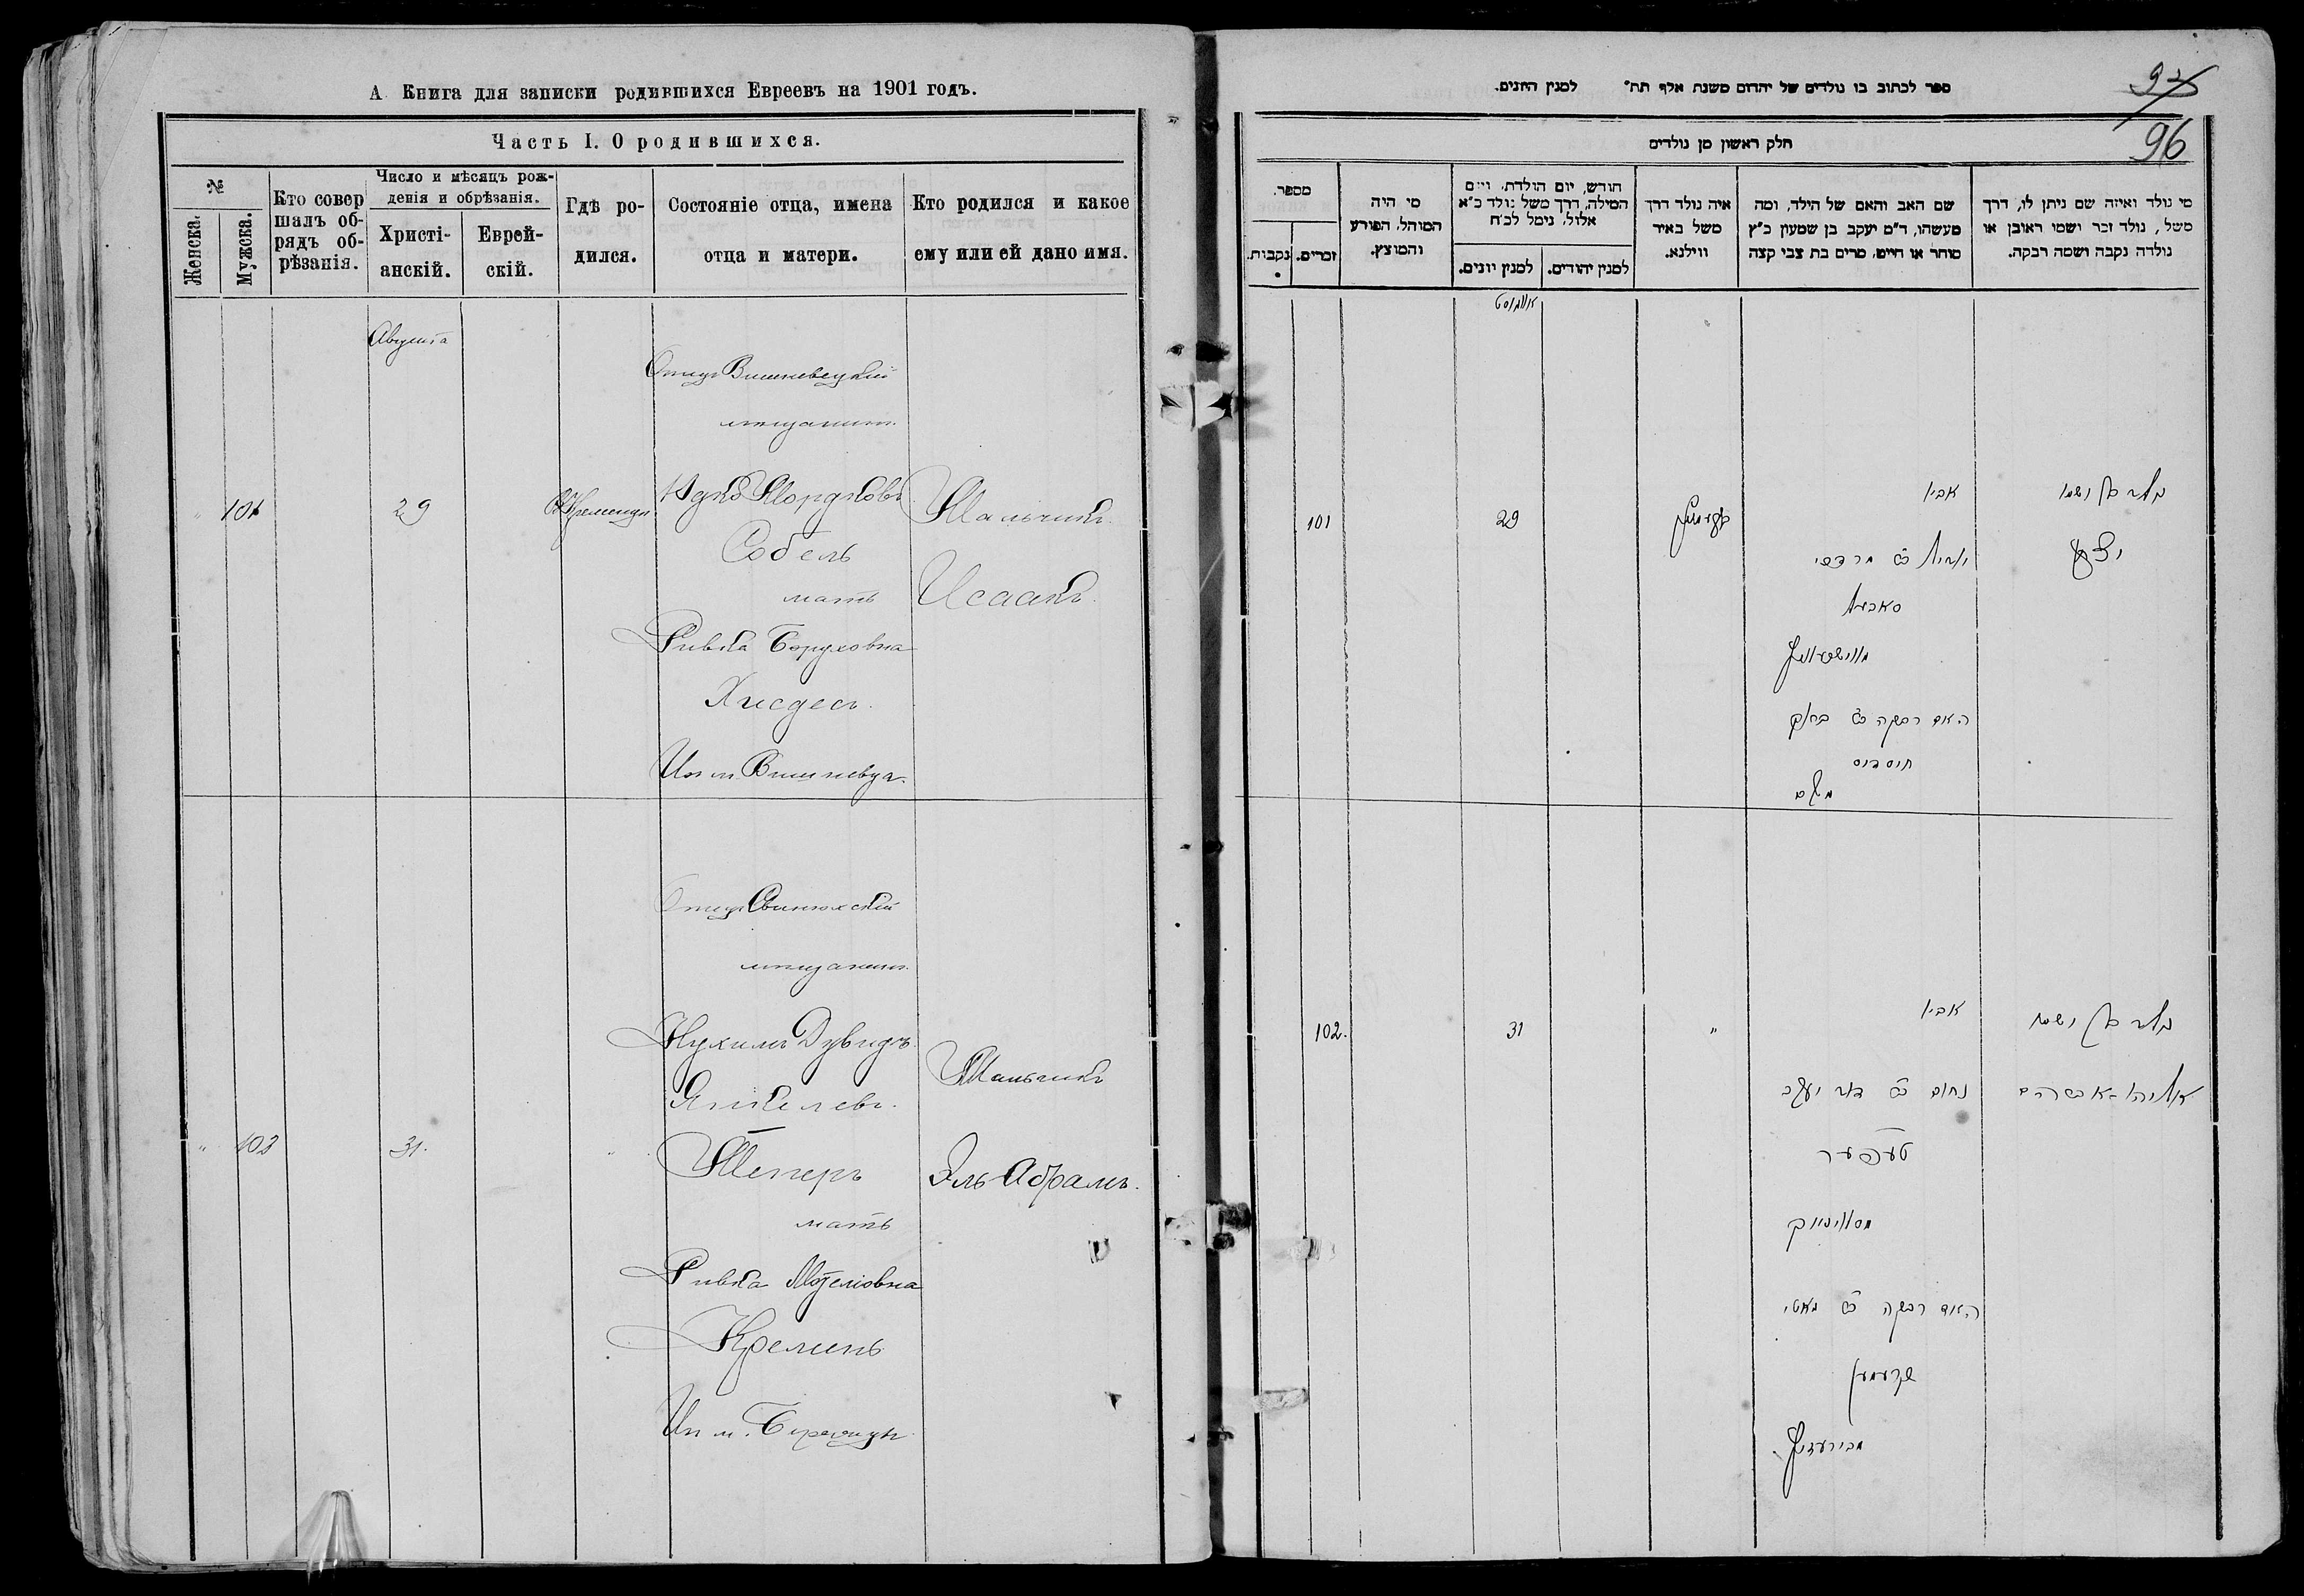 А Книга для записки родившихся Евреевъ на 1901 годъ.
Часть I. О родившихся.
№
Женска.
Мужска.
Кто совер
шалъ об-
рядъ об-
рѣзанія.
Число и мѣсяцъ рож-
денія и обрѣзанія.
Христі-
анскій.
Еврей-
скій.
Гдѣ ро-
дился.
Состояніе отца, имена
отца и матери.
Кто родился и какое
ему или ей дано имя.
Августа
Отецъ Вишневецкій
мѣщанин.
"
101
29
Мордков.
Собель
мать
Ривка Боруховна
Хисдес.
Из м. Вишневца.
Мальчикъ.
Исаакъ.
Отецъ Свинюхскій
мѣщанин.
Нухимъ Дувидъ
Янкелев.
"
102
31.
"
Теперъ
мать
Ривка Мотелiовна
Кремень
Из м.
Мальчикъ
Эль Абрамъ.
ספר לכתוב בו נולדים של יהדום משנת אלף תת״ למנין היונים.
95
96
חלק ראשון מן נולדים
מספר.
זכרים.
נקבות.
מי היה
המוהל, הפורע
והמוצץ.
חודש, יום הולדת, ויום
המילה, דרך משל נולד כ״א
אלול, נימל לכ״ח
למנין יונים.
למנין יהודים.
איה נולד דרך
משל באיר
ווילנא.
שם האב והאם של הילד, ומה
מעשהו, ד״מ יעקב בן שמעון כ״ץ
סוחר או חייט, מרים בת צבי קצה
מי נולד ואיזה שם ניתן לו, דרך
משל, נולד זכר ושמו ראובן או
נולדה נקבה ושמה רבקה.
אווגוסט
101
29
אביו
מרדכי
סאבעל
האם רבקה בת ברוך
חוסדיס
נולד בן ושמו
יצחק
102.
31
"
אביו
נחום בר דוד יעקב
טעפער
מסווניוק
האם רבקה בת מאטי
קרעמען
נולד בן ושמו
אליהו-אברהם